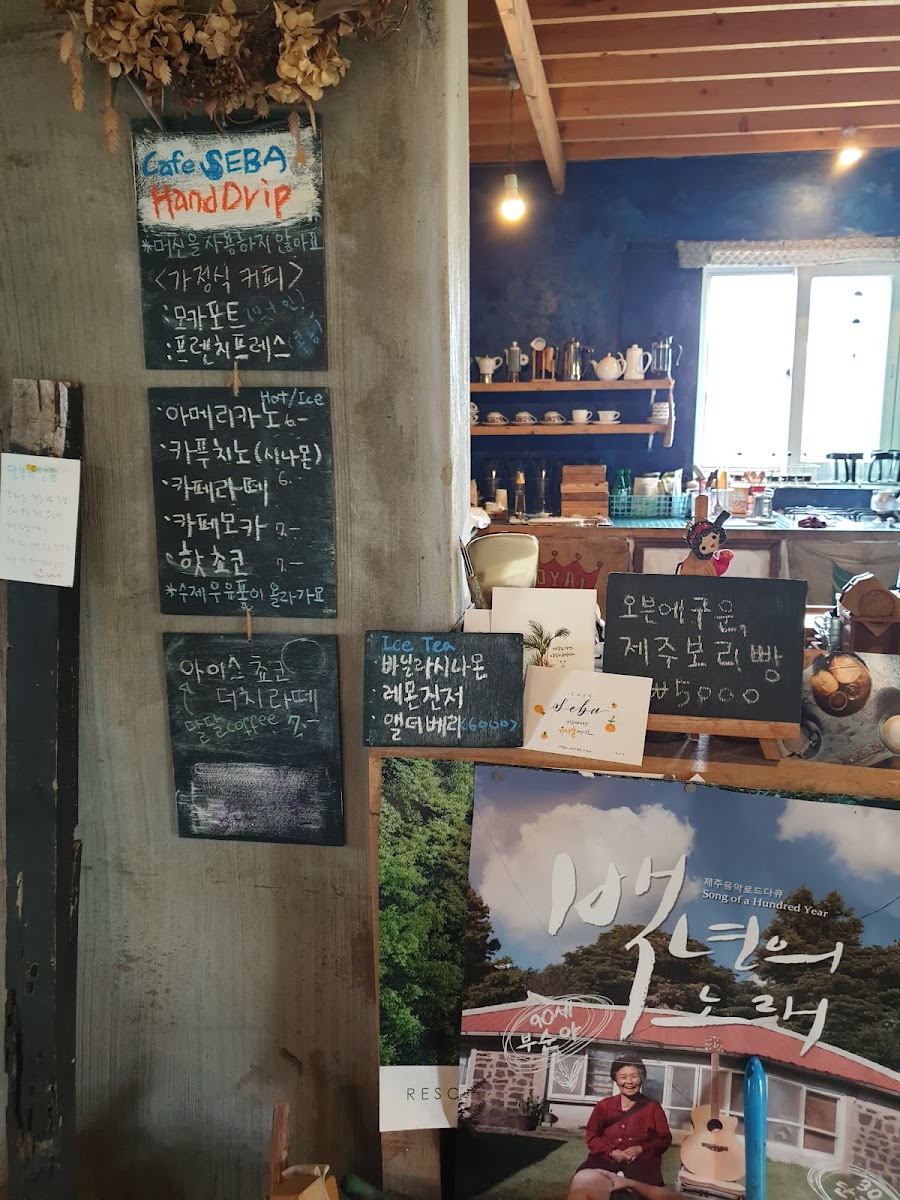 Cafe SEBA
HandDrip
*머신을 사용하지 않아요
<가정식 커피>
:모카포트
:프렌치프레스
Hot/Ice
·아메리카노 6.-
·카푸치노(시나몬)
·카페라떼 6.-
·카페모카 7.-
·핫쵸코 7.-
*수제우유폼이 올라가요
아이스 쵸코
더치라떼
달달coffee 7.-
Ice Tea
·바닐라시나몬
·레몬진저
·앨더베리<6000>
오븐에구운,
제주보리빵
₩5000
seba
ROYAL
제주음악로드다큐
Song of a Hundred Year
백년의
노래
90세
부순아
RESO
5.30